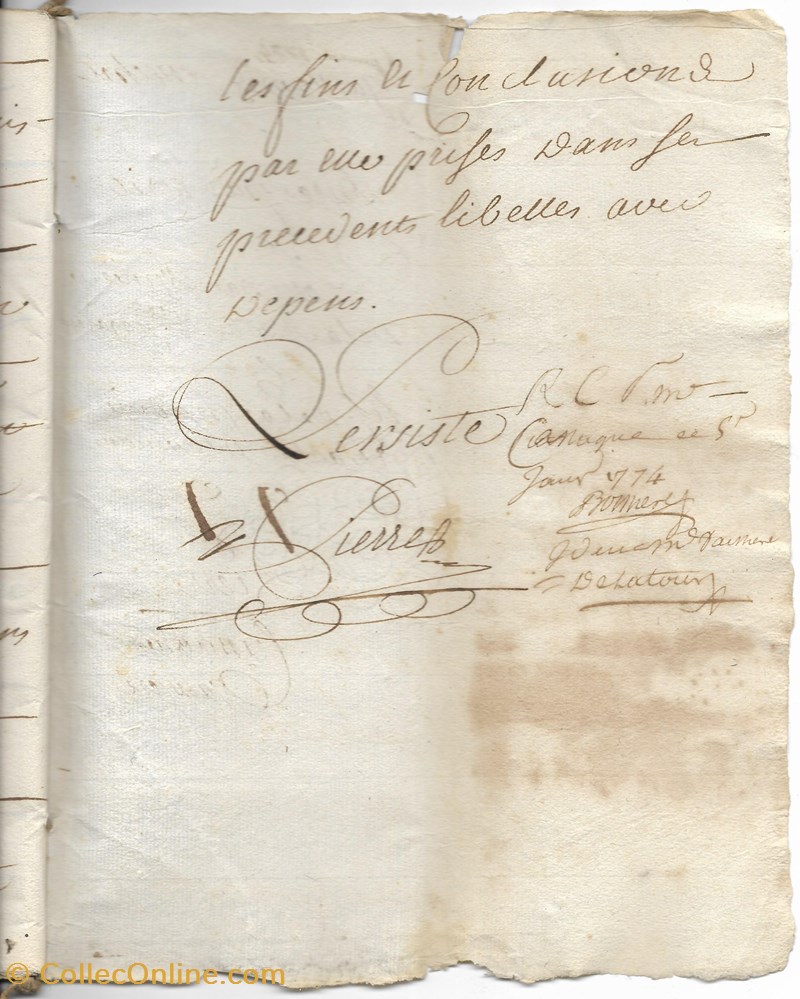 les fins et Conclusions
par elle prises dans ses
precedents libelles avec
depens.
Persiste
Pierre
R C P. me
ce 5r
Janr 1774
Bonnet
Delatour
© CollecOnline.com